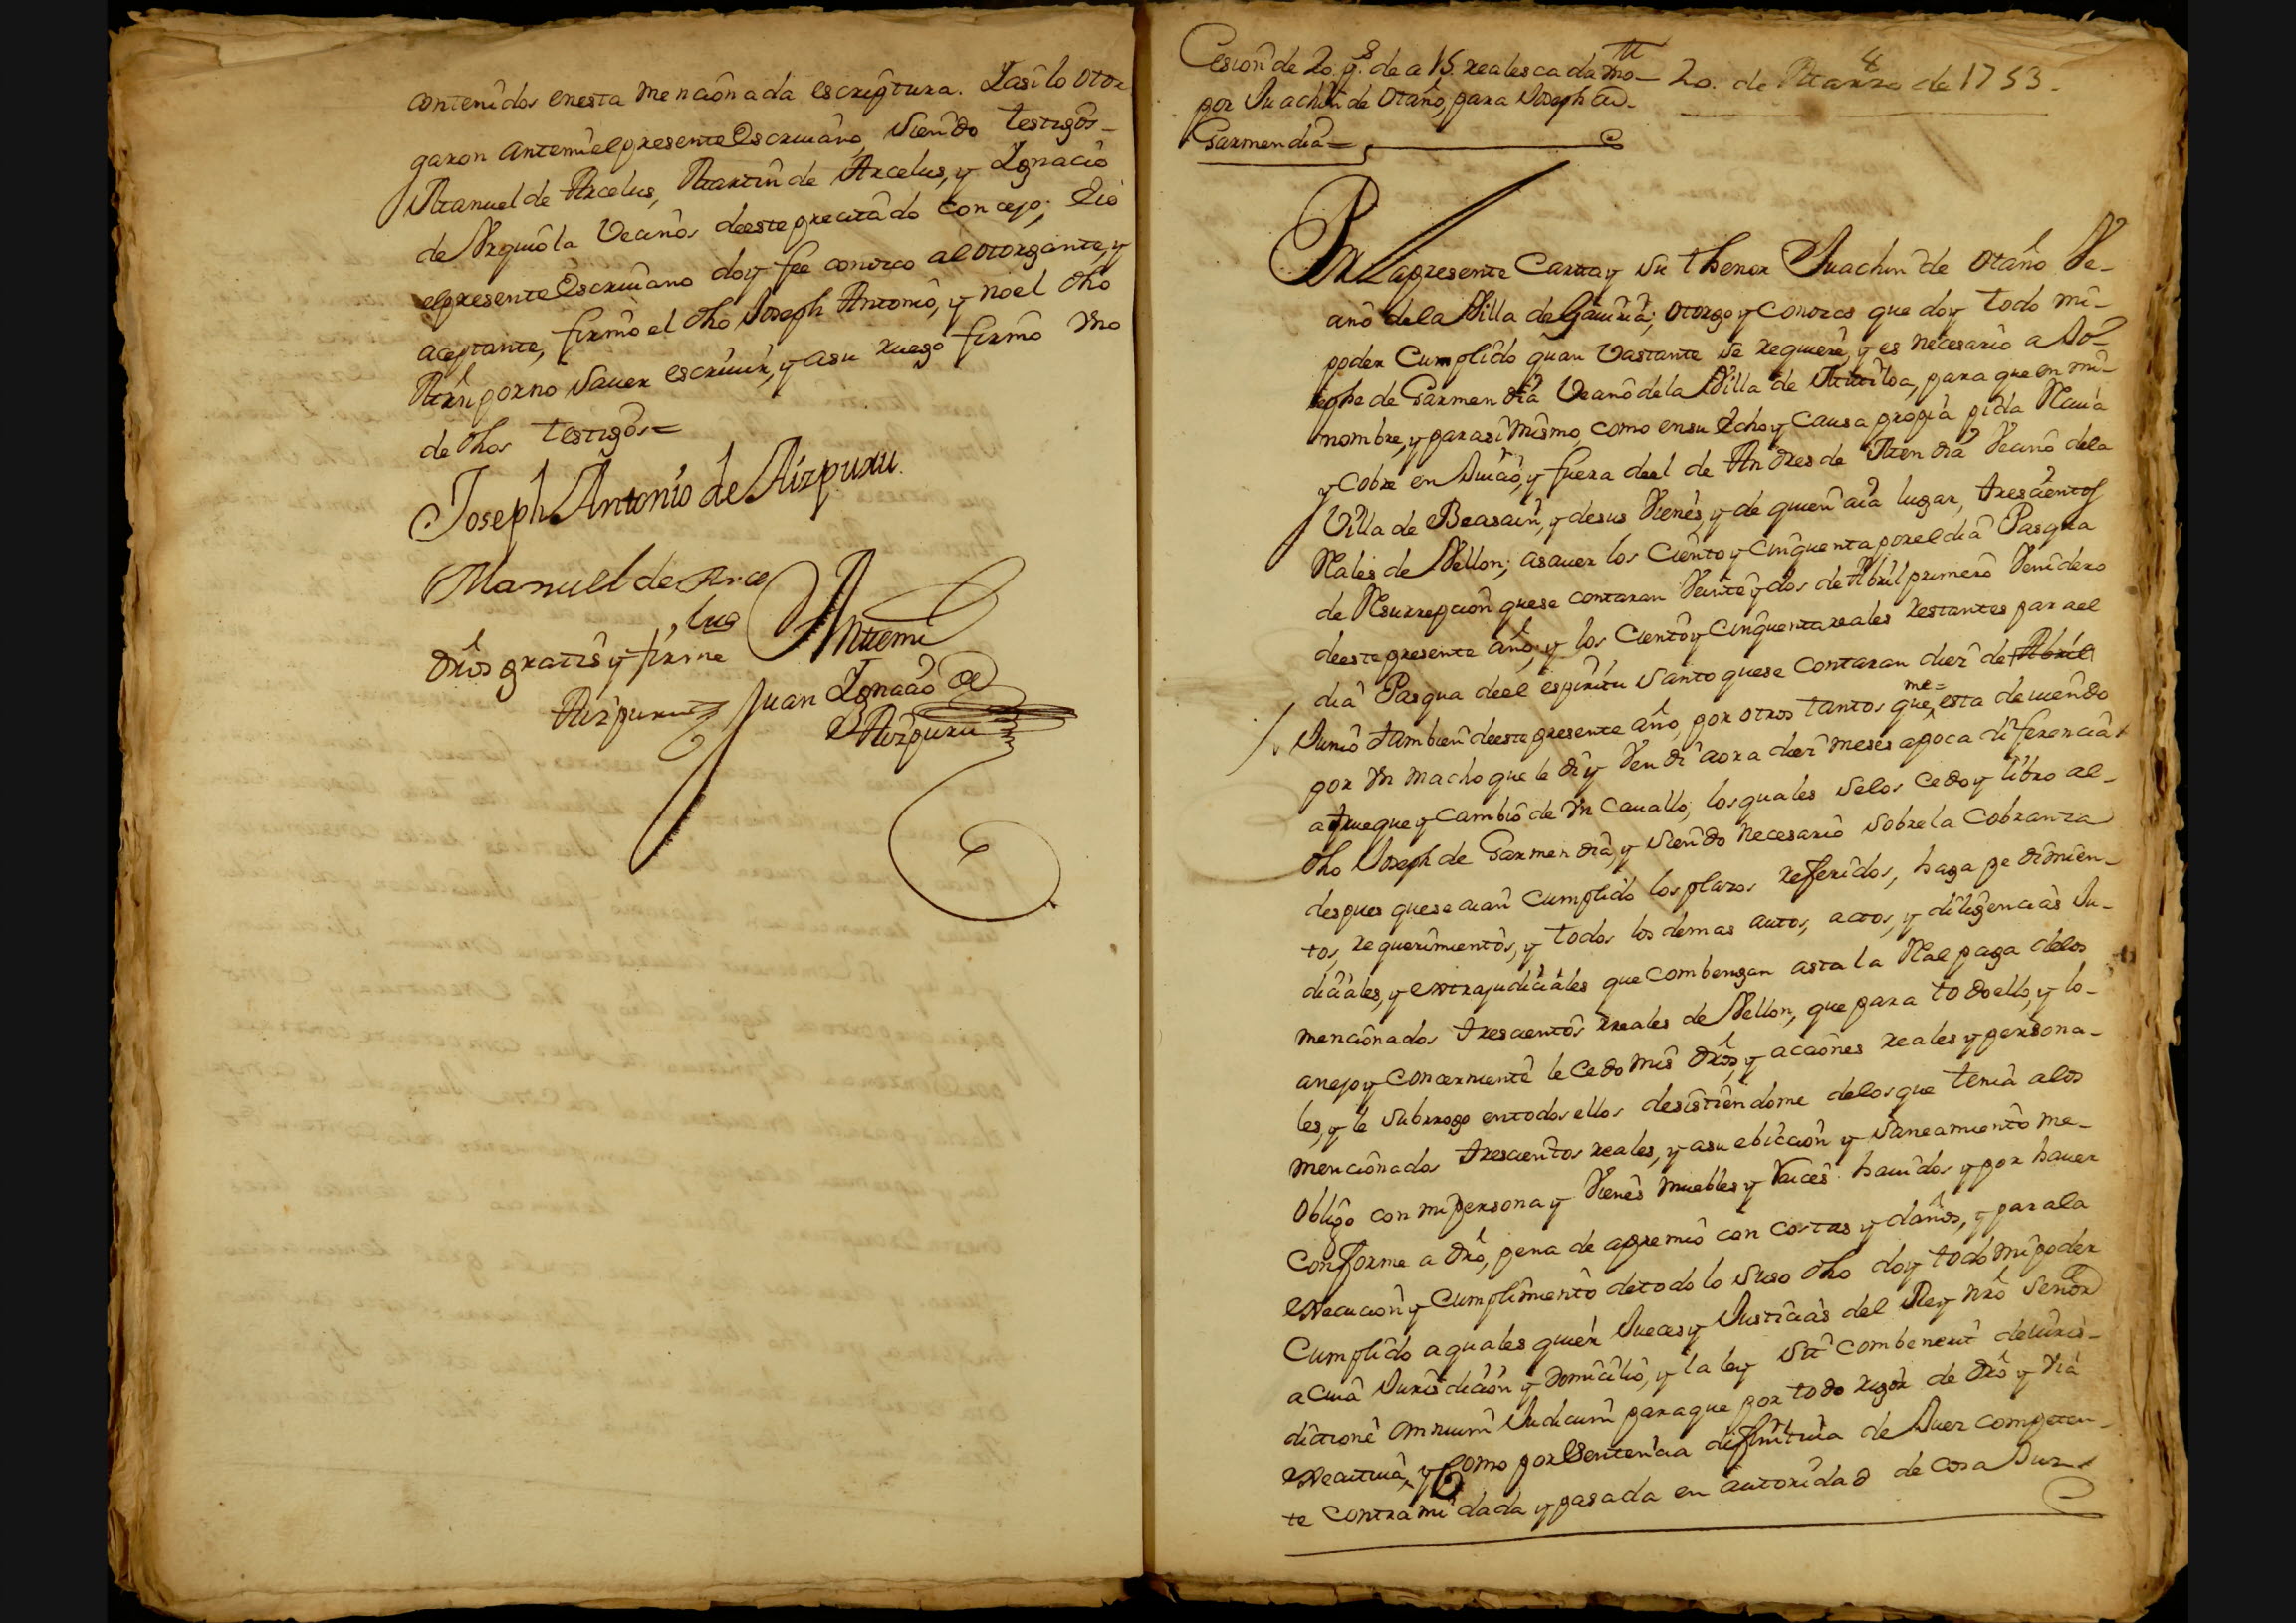 contenidos enesta mencionada escriptura. Iasi lo otor
garon antemi el presente Escriuano, siendo testigos
Manuel de Arcelus, Martin de Arcelus, y Ignacio
de Vrquiola Vecinos deeste precitado Concejo; Eio
elpresente Escriuano doy fee conozco al otorgante, y
aceptante, firmó el dho Joseph Antonio, y noel dho
Mrñ por no sauer escriuir, y asu ruego firmó vno
de dhos testigos=
Joseph Antonio de Aizpuru.
Manuel de Arce
lus
Antemi
dros gratis y firme
Aizpuru
Juan Ignacio de
Aizpuru
Cesion de 20. ps. de a 15. reales cada mo
20. de Marzo de 1753.
por Juachin de Otaño, para Joseph de
Garmendia=
8
En la presente Carta y su thenor Juachin de Otaño Ve-
cino dela Villa de Gauiria; otorgo y Conozco que doy todo mi
poder Cumplido quan Vastante se requiere, y es necesario a Jo-
sephe de Garmendia Vecino dela Villa de Mutiloa, para que en mi
nombre, y para si mismo, como en su dcho y Causa propia pida Reciua
y Cobre en Juicio, y fuera deel de Andres de Mendia Vecino dela
Villa de Beasain, y desus Vienes, y de quien aia lugar, trescientos
Reales de Vellon; asauer los Ciento y Cinquenta por el dia Pasqua
de Resurrepcion quese contaran Veinte y dos de Abril primero Venidero
deeste presente año; y los Ciento y Cinquenta reales restantes par ael
dia Pasqua deel espiritu Santo quese Contaran diez de Abril
Junio tambien deeste presente año, por otros tantos que me= esta deuiendo
por vn macho que le di y Vendi aora diez meses apoca diferencia
atrueque y Cambio de vn Cauallo; los quales selos Cedo y libro al
dho Joseph de Garmendia, y siendo necesario sobre la Cobranza
despues quese aian Cumplido los plazos referidos, haga pedimien-
tos, requerimientos, y todos los demas autos, actos, y diligencias Ju-
diciales, y extrajudiciales que combengan asta la Real paga delos
mencionados trescientos rreales de Vellon, que para todo ello, y lo
anejo y Concerniente le Cedo mis dros, y acciones reales y persona-
les, y le Subrrogo entodos ellos desistiendome delos que tenia alos
mencionados trescientos reales, y asu ebiccion y Saneamiento me
obligo con mi persona y Vienes muebles y Raices hauidos y por hauer
Conforme a dro, pena de apremio con costas y daños, y para la
execucion y Cumplimiento detodo lo suso dho doy todo mi poder
Cumplido a quales quier Jueces y Justicias del Rey nro Señor
a cuia Jurisdicion y domicilio, y la ley Sit Combenerit dejuris-
dictione omnium Judicum para que por todo rigor de dro y Via
executiua, y Como por Sentencia difinitiua de Juez competen-
te contra mi dada y pasada en autoridad de cosa Juz